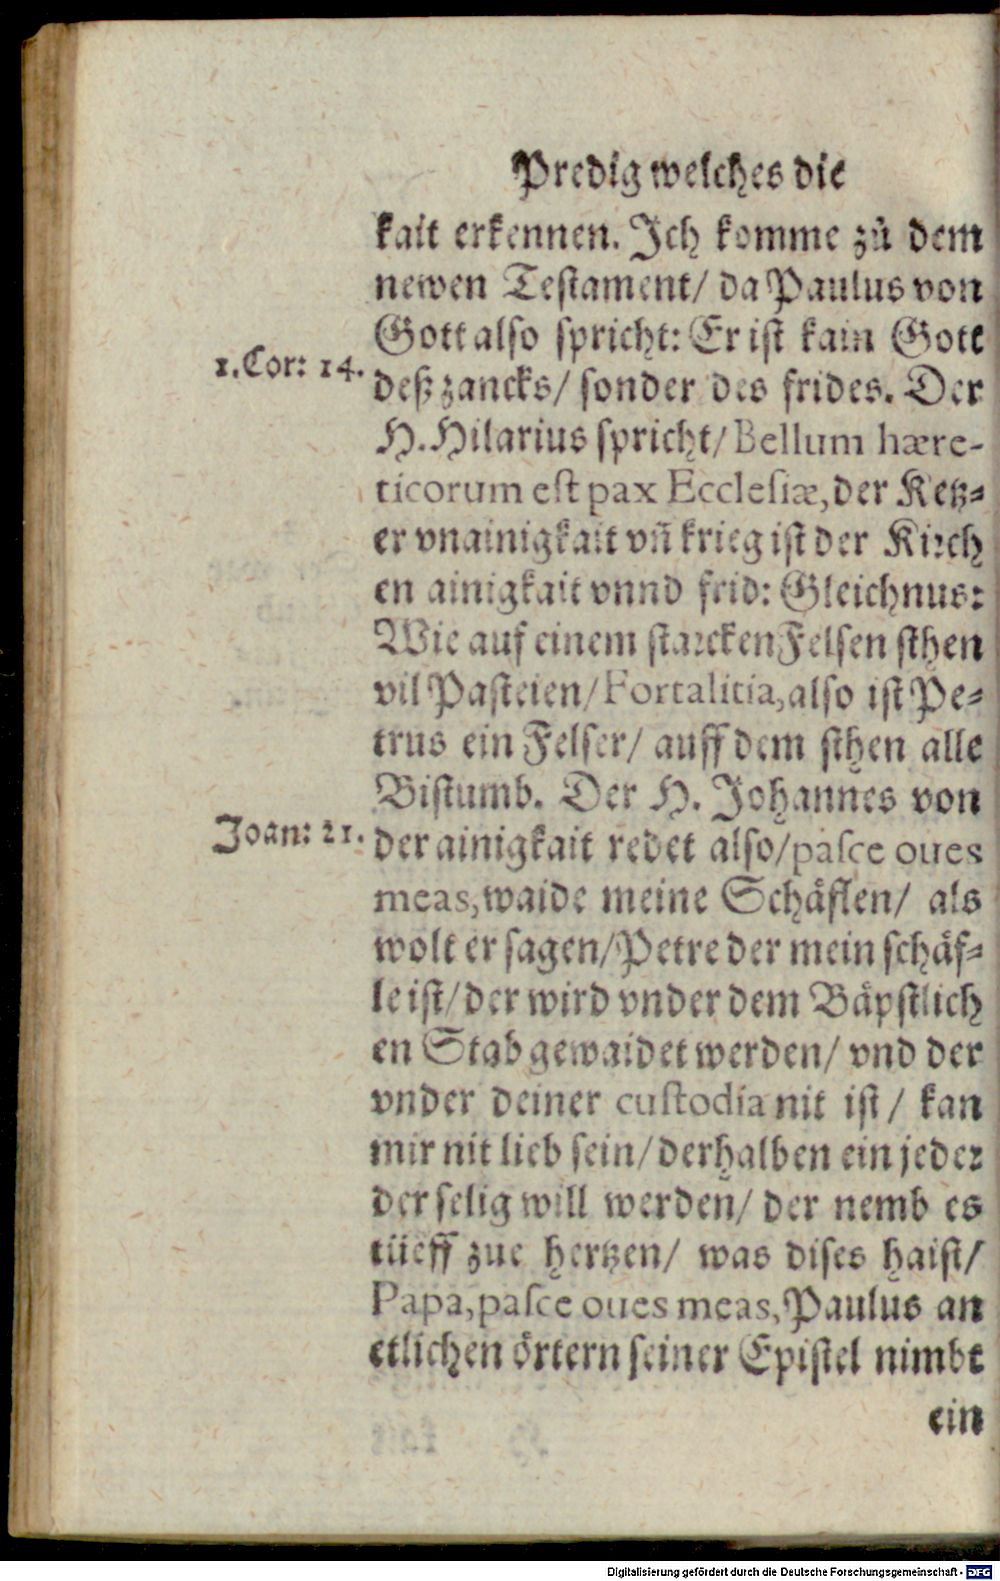 Predig welches die
kait erkennen. Ich komme zů dem
newen Testament/ da Paulus von
Gott also spricht: Er ist kain Gott
1.Cor: 14.
deß zancks/ sonder des frides. Der
H. Hilarius spricht/ Bellum hære-
ticorum est pax Ecclesiæ, der Ketz-
er vnainigkait vñ krieg ist der Kirch
en ainigkait vnnd frid: Gleichnus:
Wie auf einem starcken Felsen sthen
vil Pasteien/ Fortalitia, also ist Pe-
trus ein Felser/ auff dem sthen alle
Bistumb. Der H. Johannes von
Joan: 21.
der ainigkait redet also/ pasce oues
meas, waide meine Schäflen/ als
wolt er sagen/ Petre der mein schäf-
le ist/ der wird vnder dem Bäpstlich
en Stab gewaidet werden/ vnd der
vnder deiner custodia nit ist/ kan
mir nit lieb sein/ derhalben ein jeder
der selig will werden/ der nemb es
tüeff zue hertzen/ was dises haist/
Papa, pasce oues meas, Paulus an
etlichen örtern seiner Epistel nimbt
ein
Digitalisierung gefördert durch die Deutsche Forschungsgemeinschaft - DFG